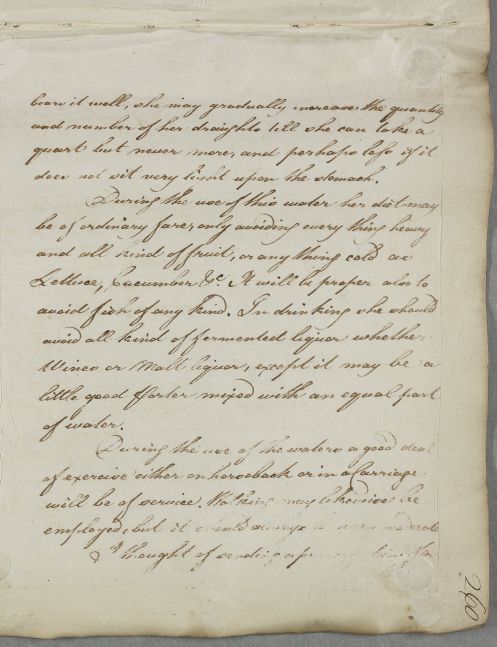 bears it well, she may gradually increase the quantity
and number of her draughts till she can take a
quart but never more, and perhaps less if it
does not sit very light upon the stomach.
During the use of this water her diet may
be of ordinary fare, only avoiding every thing heavy
and all kind of fruit, or any thing cold as
Lettuce, Cucumber &c. It will be proper also to
avoid fish of any kind. In drinking she should
avoid all kind of fermented liquor whether
Wines or Malt liquor, except it may be a
little good Porter mixed with an equal part
of water.
During the use of the waters a good deal
of exercise either on horseback or in a Carriage
will be of service. Walking may likewise be
employed, but it should always be very moderate
thought of sending a
260